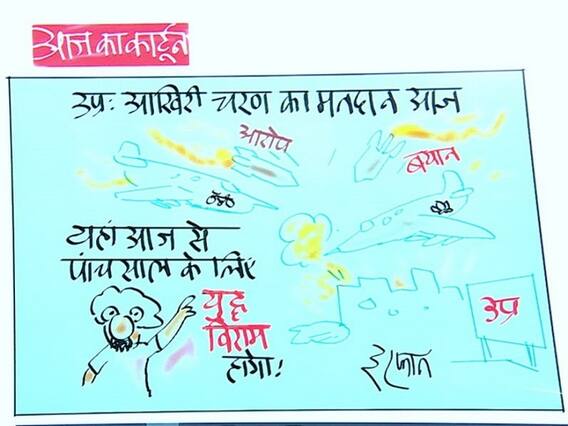 आज का कार्टून
उप्र: आखिरी चरण का मतदान आज
आरोप
बयान
यहां आज से
पांच साल के लिए
युद्ध
विराम
होगा!
उप्र
इरफान